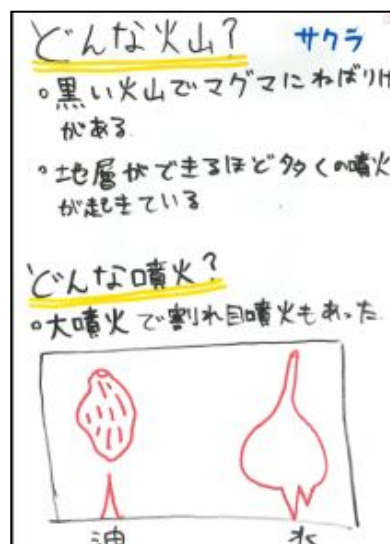 どんな火山?
サクラ
○黒い火山でマグマにねばりけ
がある
○地層ができるほど多くの噴火
が起きている
どんな噴火?
○大噴火で割れ目噴火もあった
油
水